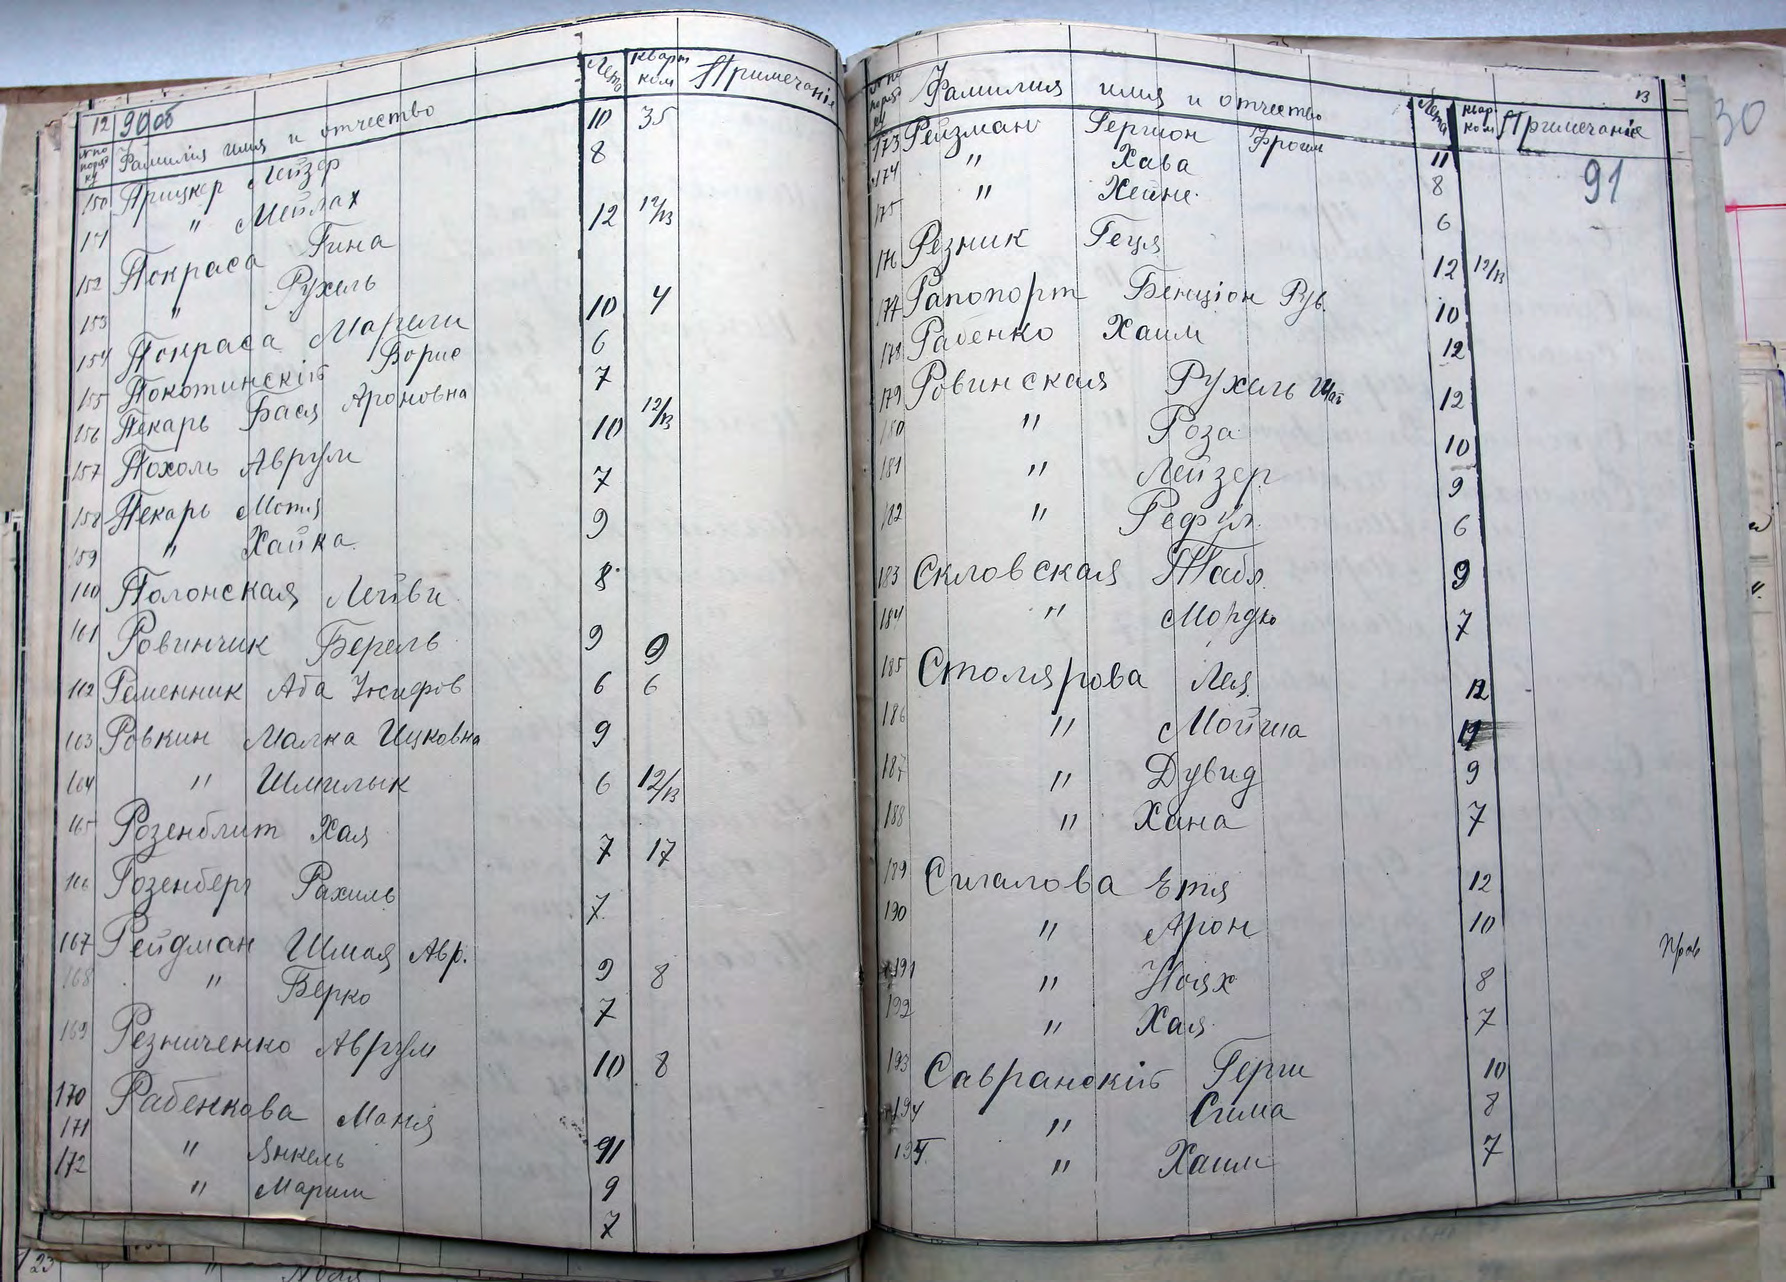 12 90об
№ по порядку Фамилия имя и отчество Лета кварт ком Примечание
150 Прицкер Лейзер 10 35
151 " Мейлах 8
152 Покраса Гина 12 12/13
153 " Рухель
154 Покраса Марьем 10 4
155 Покотинский Борис 6
156 Пекарь Бася Ароновна 7
157 Похоль Аврум 10 12/13
158 Пекарь Мотя 7
159 " Хайка 9
160 Полонская Лейви 8
161 Ровинчик Берель 9 9
162 Ременник Аба Иосифов 6 6
163 Ровкин Малка Ицковна 9
164 " Шмилык 6 12/13
165 Розенблит Хая 7 17
166 Розенберг Рахиль 7
167 Рейдман Шмая Авр. 9 8
168 " Берко 7
169 Резниченко Аврум 10 8
170 Рабенкова Маня 11
171 " Янкель 9
172 " Марим 7
13
№ по порядку Фамилия имя и отчество Лета квар ком Примечание
173 Рейзман Гершон Фроим 11
91
174 " Хава 8
175 " Хейне 6
176 Резник Геця 12 12/13
177 Рапопорт Бенцион Рув. 10
178 Рабенко Хаим 12
179 Ровинская Рухель 12
180 " Роза 10
181 " Лейзер 9
182 " Рефул 6
183 Скловская Табл 9
184 " Мордко 7
185 Столярова Лея 12
186 " Мойша
187 " Дувид 9
188 " Хана 7
189 Сигалова Етя 12
190 " Арон 10
191 " Нояx 8
192 " Хая 7
193 Савранский Герш 10
194 " Сима 8
195 " Хаим 7
30
23